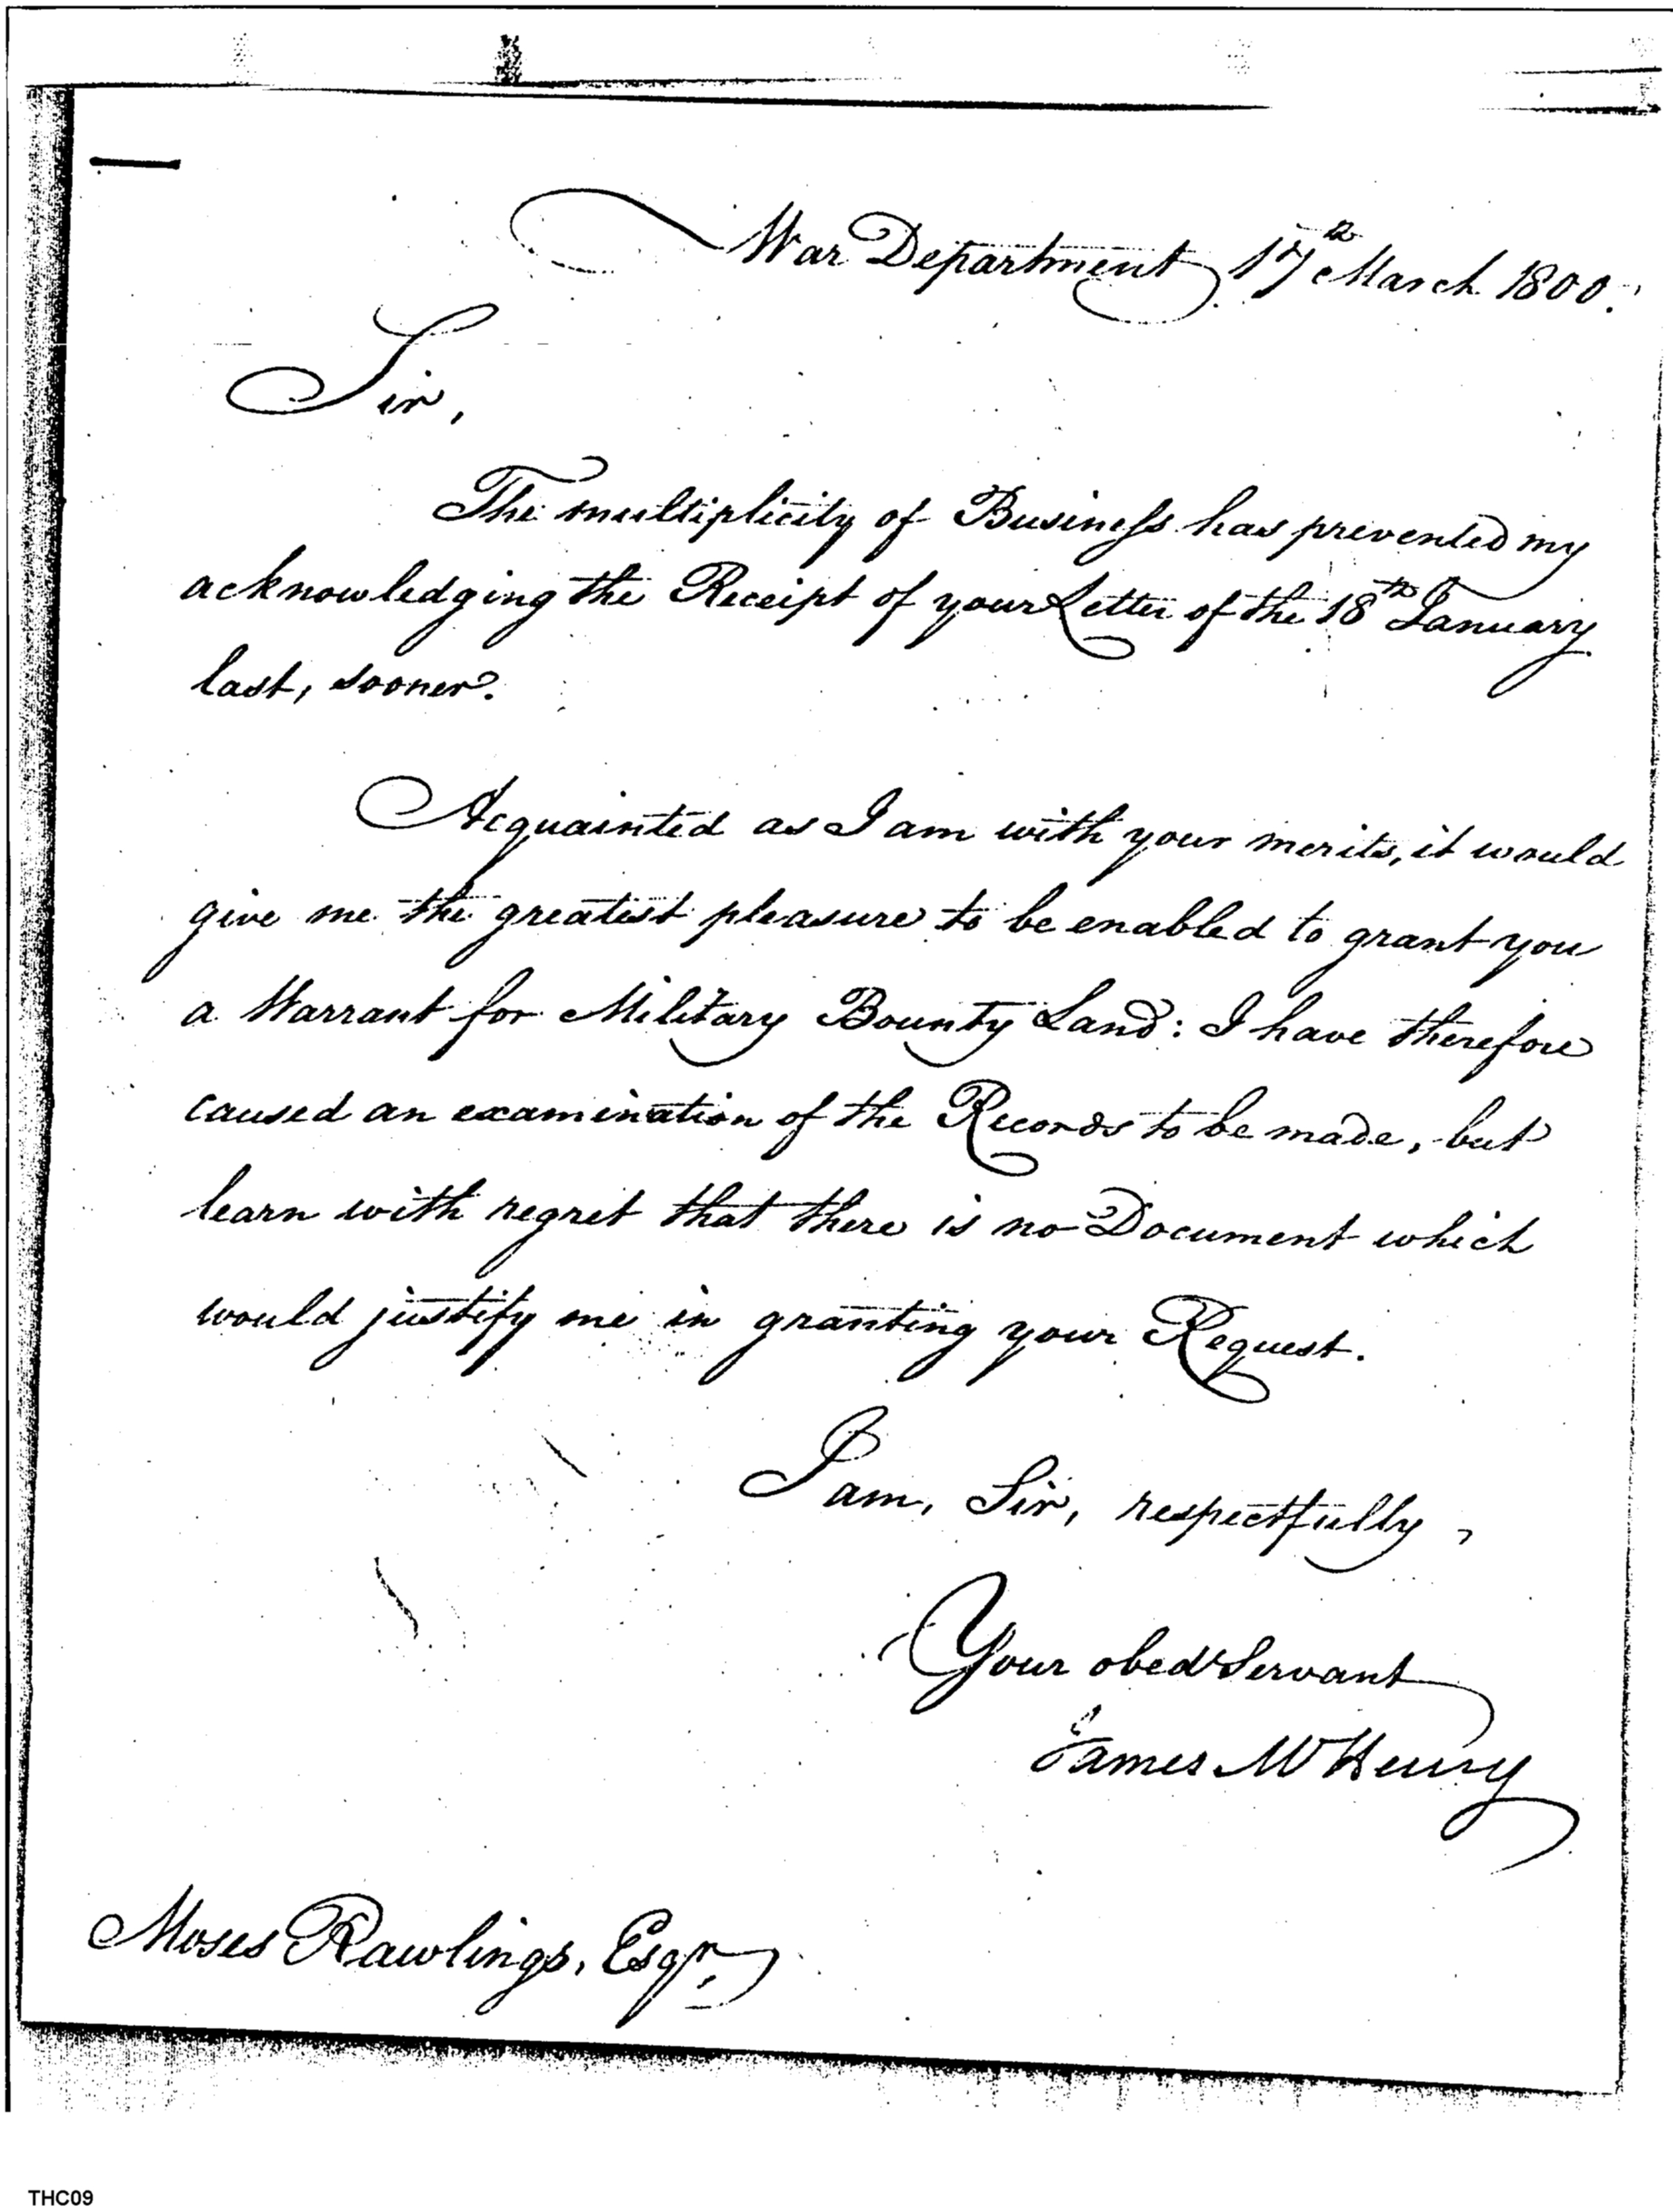 War Department 17th March 1800.
Sir,
The multiplicity of Business has prevented my
acknowledging the Receipt of your Letter of the 18th January
last, sooner.
Acquainted as I am with your merits, it would
give me the greatest pleasure to be enabled to grant you
a Warrant for Military Bounty Land: I have therefore
caused an examination of the Records to be made, but
learn with regret that there is no Document which
would justify me in granting your Request.
I am, Sir, respectfully,
Your obedt Servant
James McHenry
Moses Rawlings, Esqr.
THC09